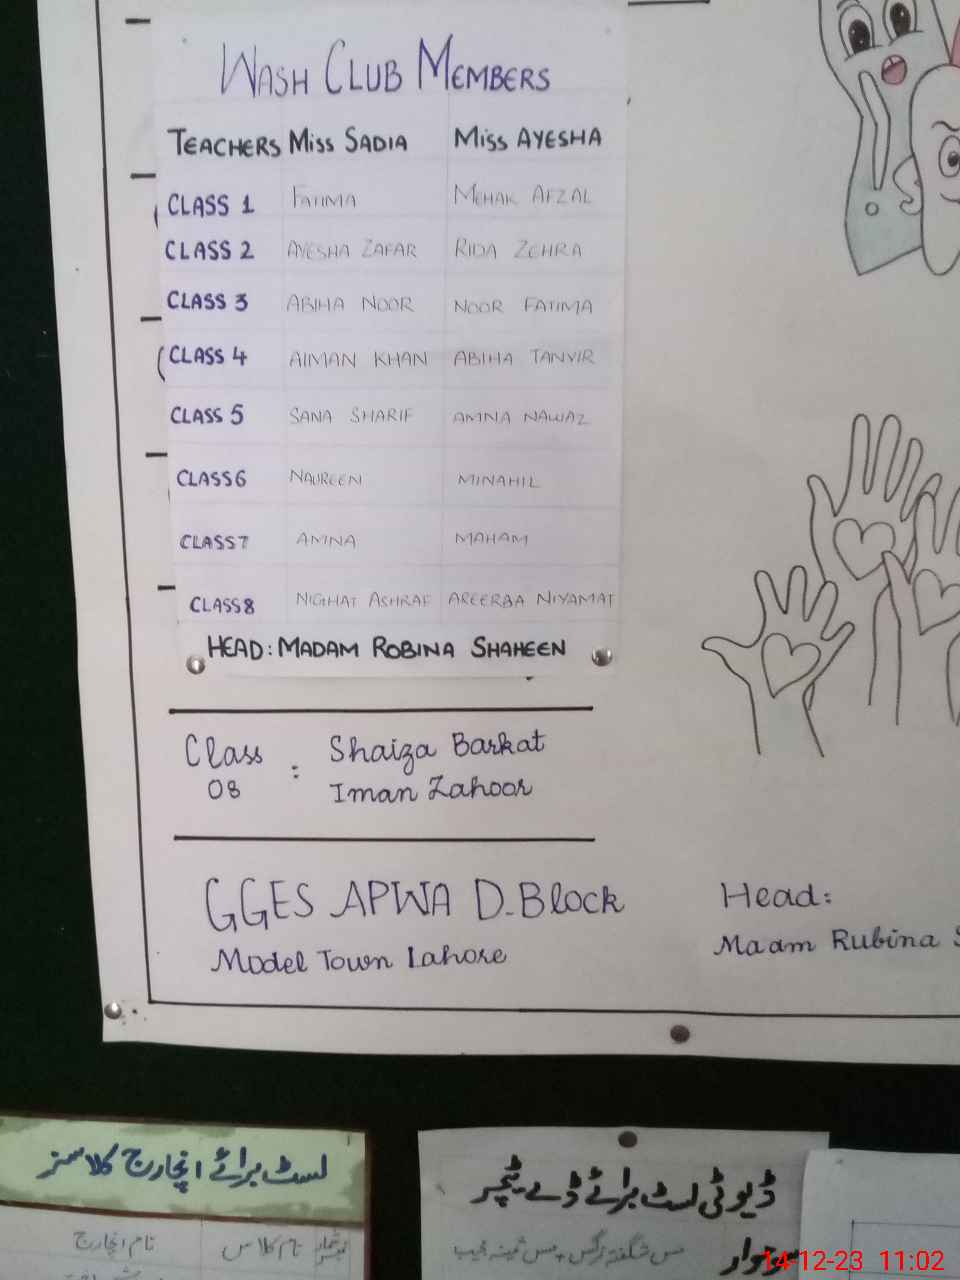 WASH CLUB MEMBERS
TEACHERS MISS SADIA MISS AYESHA
CLASS 1 FATIMA MEHAK AFZAL
CLASS 2 AYESHA ZAFAR RIDA ZEHRA
CLASS 3 ABIHA NOOR NOOR FATIMA
CLASS 4 AIMAN KHAN ABIHA TANVIR
CLASS 5 SANA SHARIF AMNA NAWAZ
CLASS 6 NAUREEN MINAHIL
CLASS 7 AMNA MAHAM
CLASS 8 NIGHAT ASHRAF AREERBA NIYAMAT
HEAD: MADAM ROBINA SHAHEEN
Class 08 : Shaiza Barkat
Iman Zahoor
GGES APWA D-Block
Model Town Lahore
Head:
Maam Rubina S
لسٹ برائے انچارج کلاسز
نمبر شمار نام کلاس نام انچارج
ڈیوٹی لسٹ برائے ڈے ٹیچر
سوموار مس شگفتہ نرگس + مس ثمینہ نجیب
14-12-23 11:02